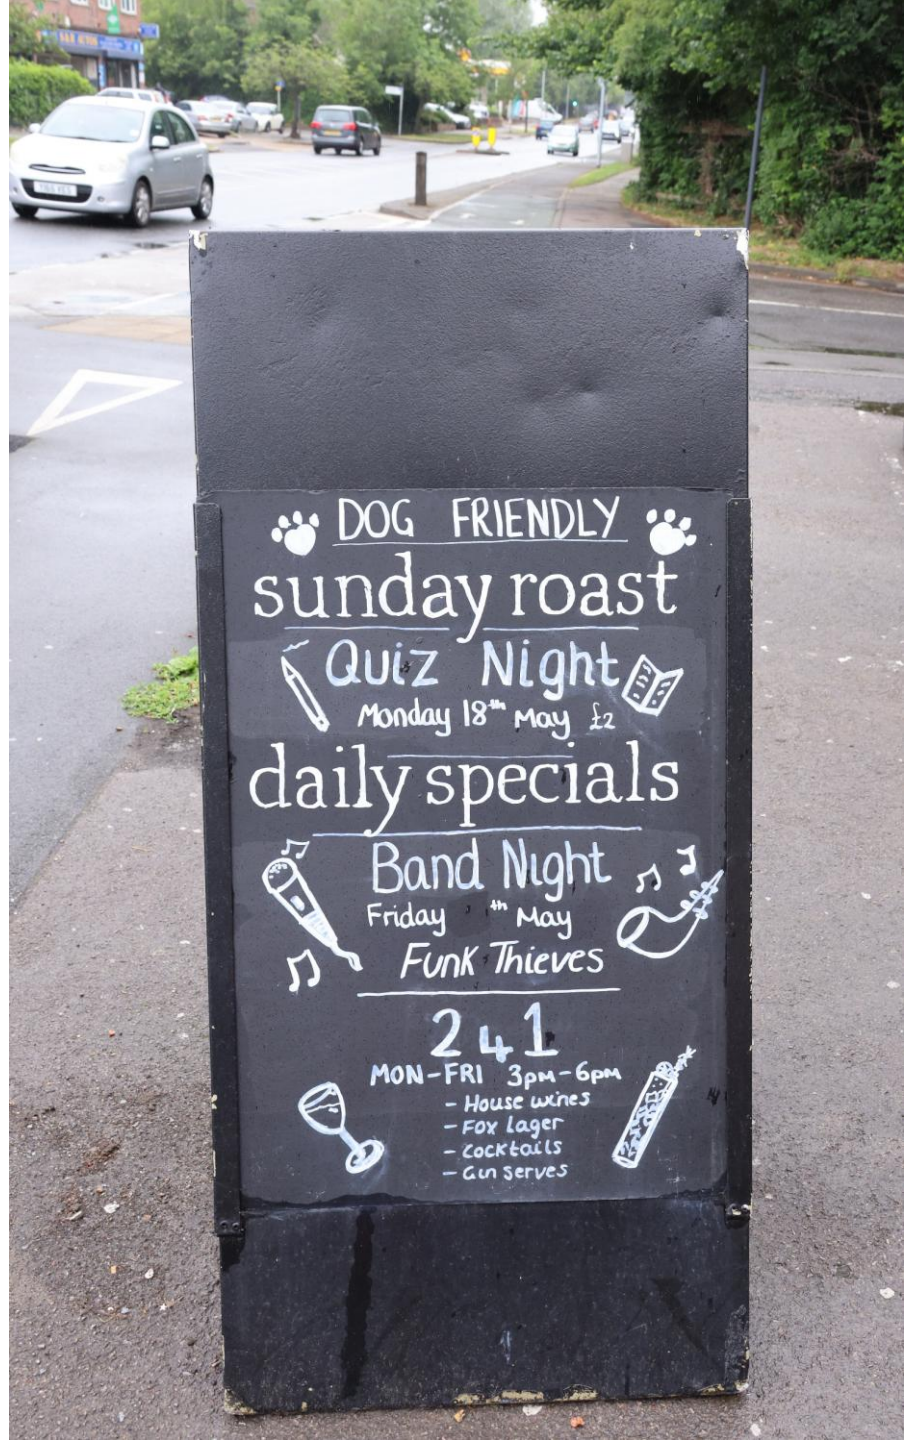 DOG FRIENDLY
sunday roast
Quiz Night
Monday 18th May £2
daily specials
Band Night
Friday th May
Funk Thieves
2 4 1
MON-FRI 3pm-6pm
- House wines
- Fox lager
- Cocktails
- Gin serves